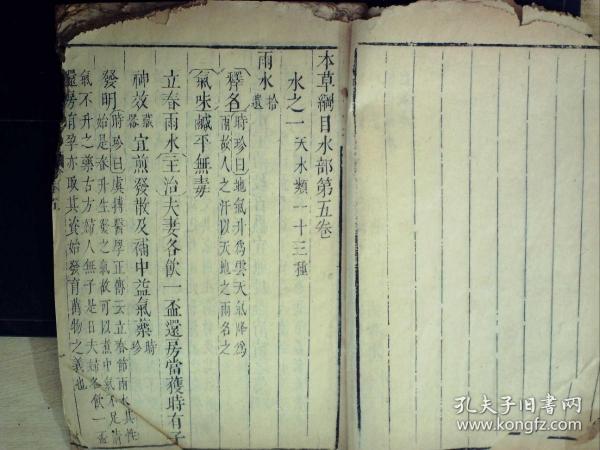 本草綱目水部第五卷
水之一 天水類一十三種
雨水 拾遺
釋名 時珍曰地氣升爲雲天氣降爲
雨故人之汗以天地之雨名之
氣味鹹平無毒
立春雨水主治夫妻各飲一盃還房當獲時有子
神效藏器宜煎發散及補中益氣藥時珍
發明 時珍曰虞摶醫學正傳云立春節雨水其性
始是春升生發之氣故可以煮中氣不足清
氣不升之藥古方婦人無子是日夫婦各飲一盃
還房有孕亦取其資始發育萬物之義也
孔夫子旧书网
www.kongfz.com